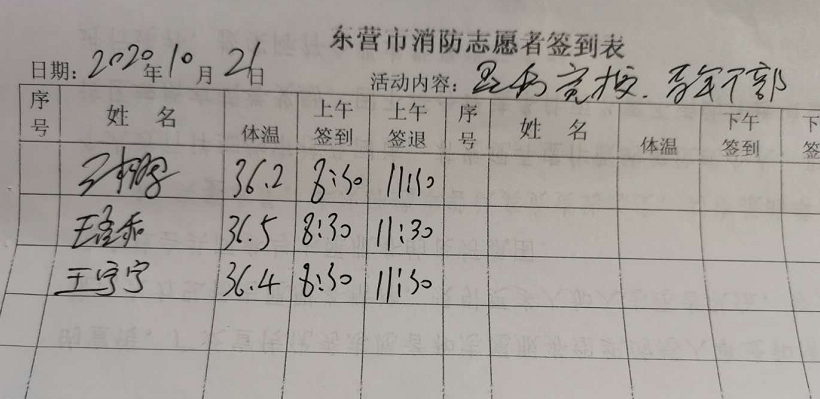 东营市消防志愿者签到表
日期：2020年10月21日 活动内容：
序号 姓 名 体温 上午签到 上午签退 序号 姓 名 体温 下午签到 下 签
王 36.2 8:30 11:30
王 36.5 8:30 11:30
王宁宁 36.4 8:30 11:30